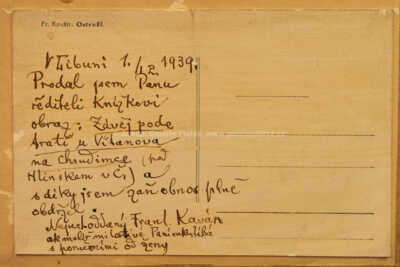 Fr. Kaván: Ostříž.
V Libuni 1./12. 1939.
Prodal jsem Panu
řediteli Knížkovi
obraz: Závěj pode
tratí u Vítanova
na Chrudimce (nad
Hlinskem v Č) a
s díky jsem zaň obnos plně
obdržel.
Frant Kaván
ak malíř
s poručením od ženy